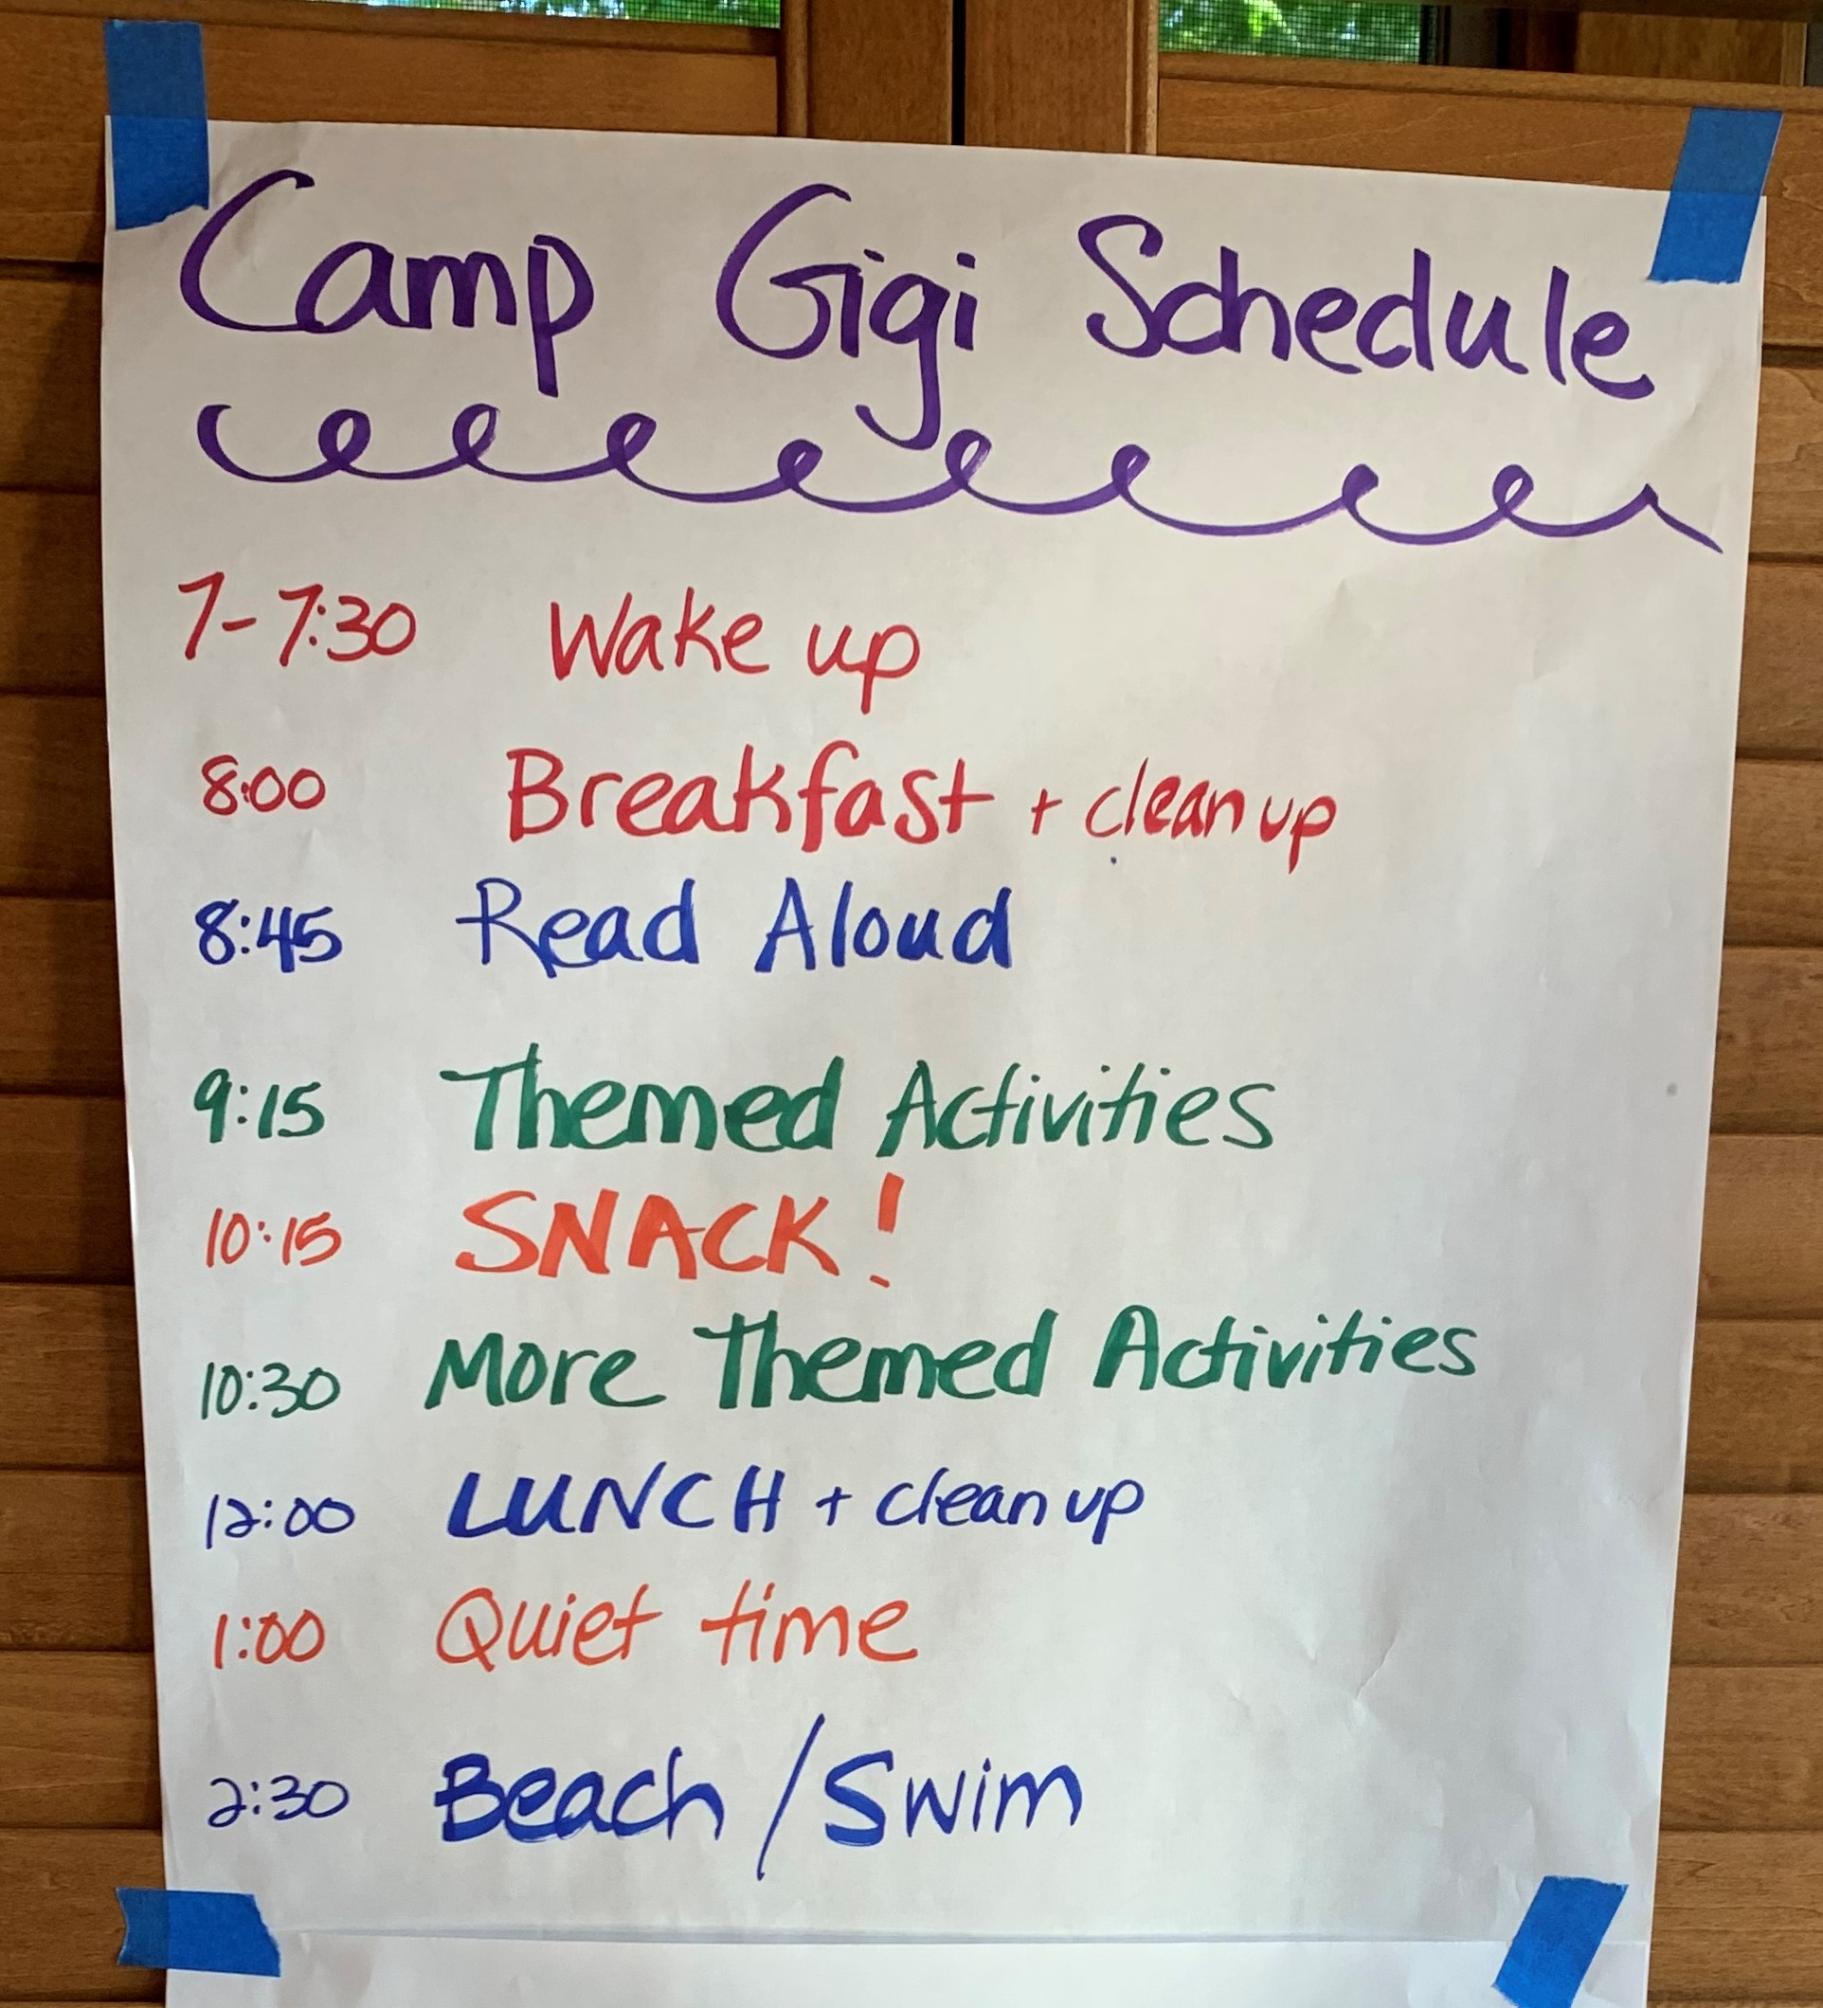 Camp Gigi Schedule
7-7:30 Wake up
8:00 Breakfast + clean up
8:45 Read Aloud
9:15 Themed Activities
10:15 SNACK!
10:30 More Themed Activities
12:00 LUNCH + clean up
1:00 Quiet time
2:30 Beach/Swim